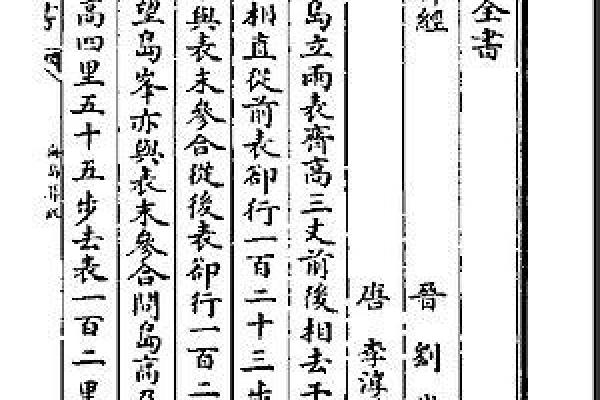 全書
經
晉 劉
唐 李淳
島立兩表齊高三丈前後相去千
相直從前表卻行一百二十三步
與表末參合從後表卻行一百二
望島峯亦與表末參合問島高及
高四里五十五步去表一百二里
海島算經